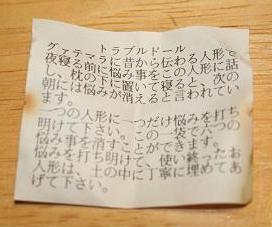 トラブルドール
グァテマラに昔から伝わる人形で
夜寝る前に悩み事をこの人形に話
し、枕の下に置いて寝ると、次の
朝には悩みが消えると言われてい
ます。
一つの人形に一つだけ悩みを打ち
明けて下さい。この一袋で六つの
悩み事を消すことができます。
悩みを打ち明けて、使い終ったお
人形は、土の中に丁寧に埋めてあ
げて下さい。